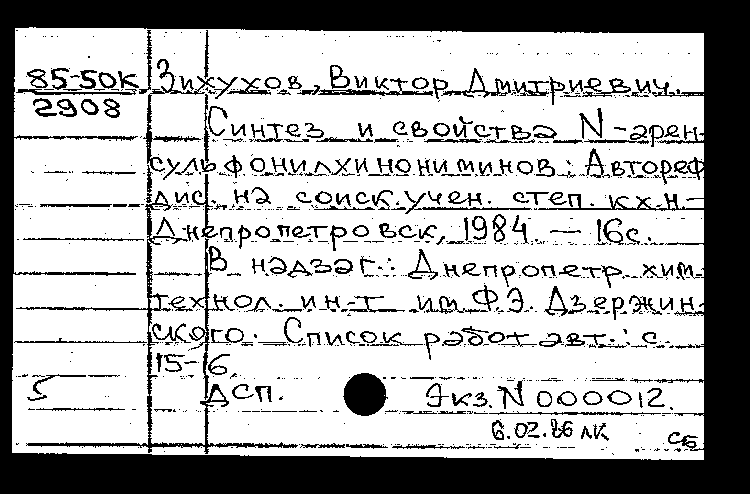 85-50К Зихухов, Виктор Дмитриевич.
2908
Синтез и свойства N-арен-
сульфонилхинониминов: Автореф
дис. на соиск. учен. степ. к.х.н.-
Днепропетровск, 1984. — 16с.
В надзаг.: Днепропетр. хим.
технол. ин-т им Ф.Э. Дзержин-
ского. Список работ авт.: с.
15-16.
5 ДСП. Экз. N 000012.
6.02.86 лк СБ